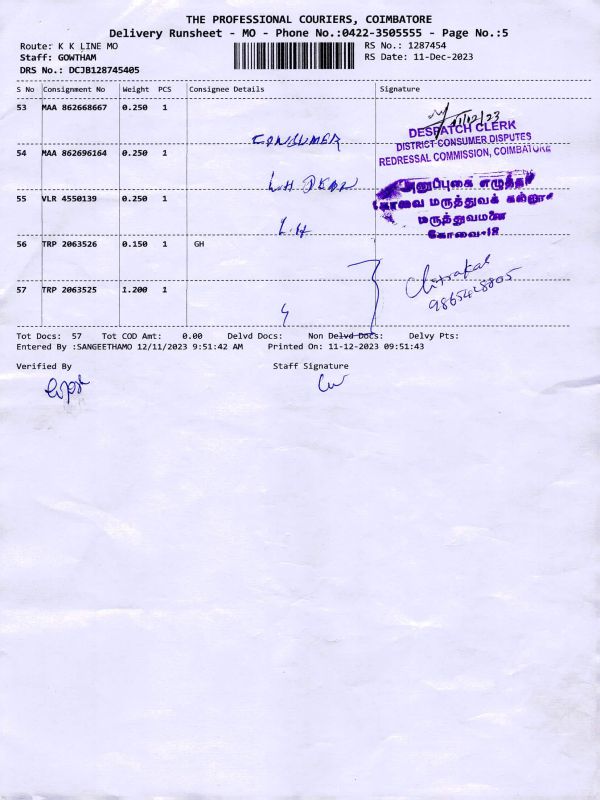 THE PROFESSIONAL COURIERS, COIMBATORE
Delivery Runsheet - MO - Phone No.:0422-3505555 - Page No.:5
Route: K K LINE MO RS No.: 1287454
Staff: GOWTHAM RS Date: 11-Dec-2023
DRS No.: DCJB128745405
S No Consignment No Weight PCS Consignee Details Signature
53 MAA 862668667 0.250 1
CONSUMER
DESPATCH CLERK
DISTRICT CONSUMER DISPUTES
REDRESSAL COMMISSION, COIMBATORE
54 MAA 862696164 0.250 1
L.H DEAN
அனுப்புகை எழுத்தர்
கோவை மருத்துவக் கல்லூரி
மருத்துவமனை
கோவை-18
55 VLR 4550139 0.250 1
L.H
56 TRP 2063526 0.150 1 GH
57 TRP 2063525 1.200 1
Tot Docs: 57 Tot COD Amt: 0.00 Delvd Docs: Non Delvd Docs: Delvy Pts:
Entered By :SANGEETHAMO 12/11/2023 9:51:42 AM Printed On: 11-12-2023 09:51:43
Verified By Staff Signature